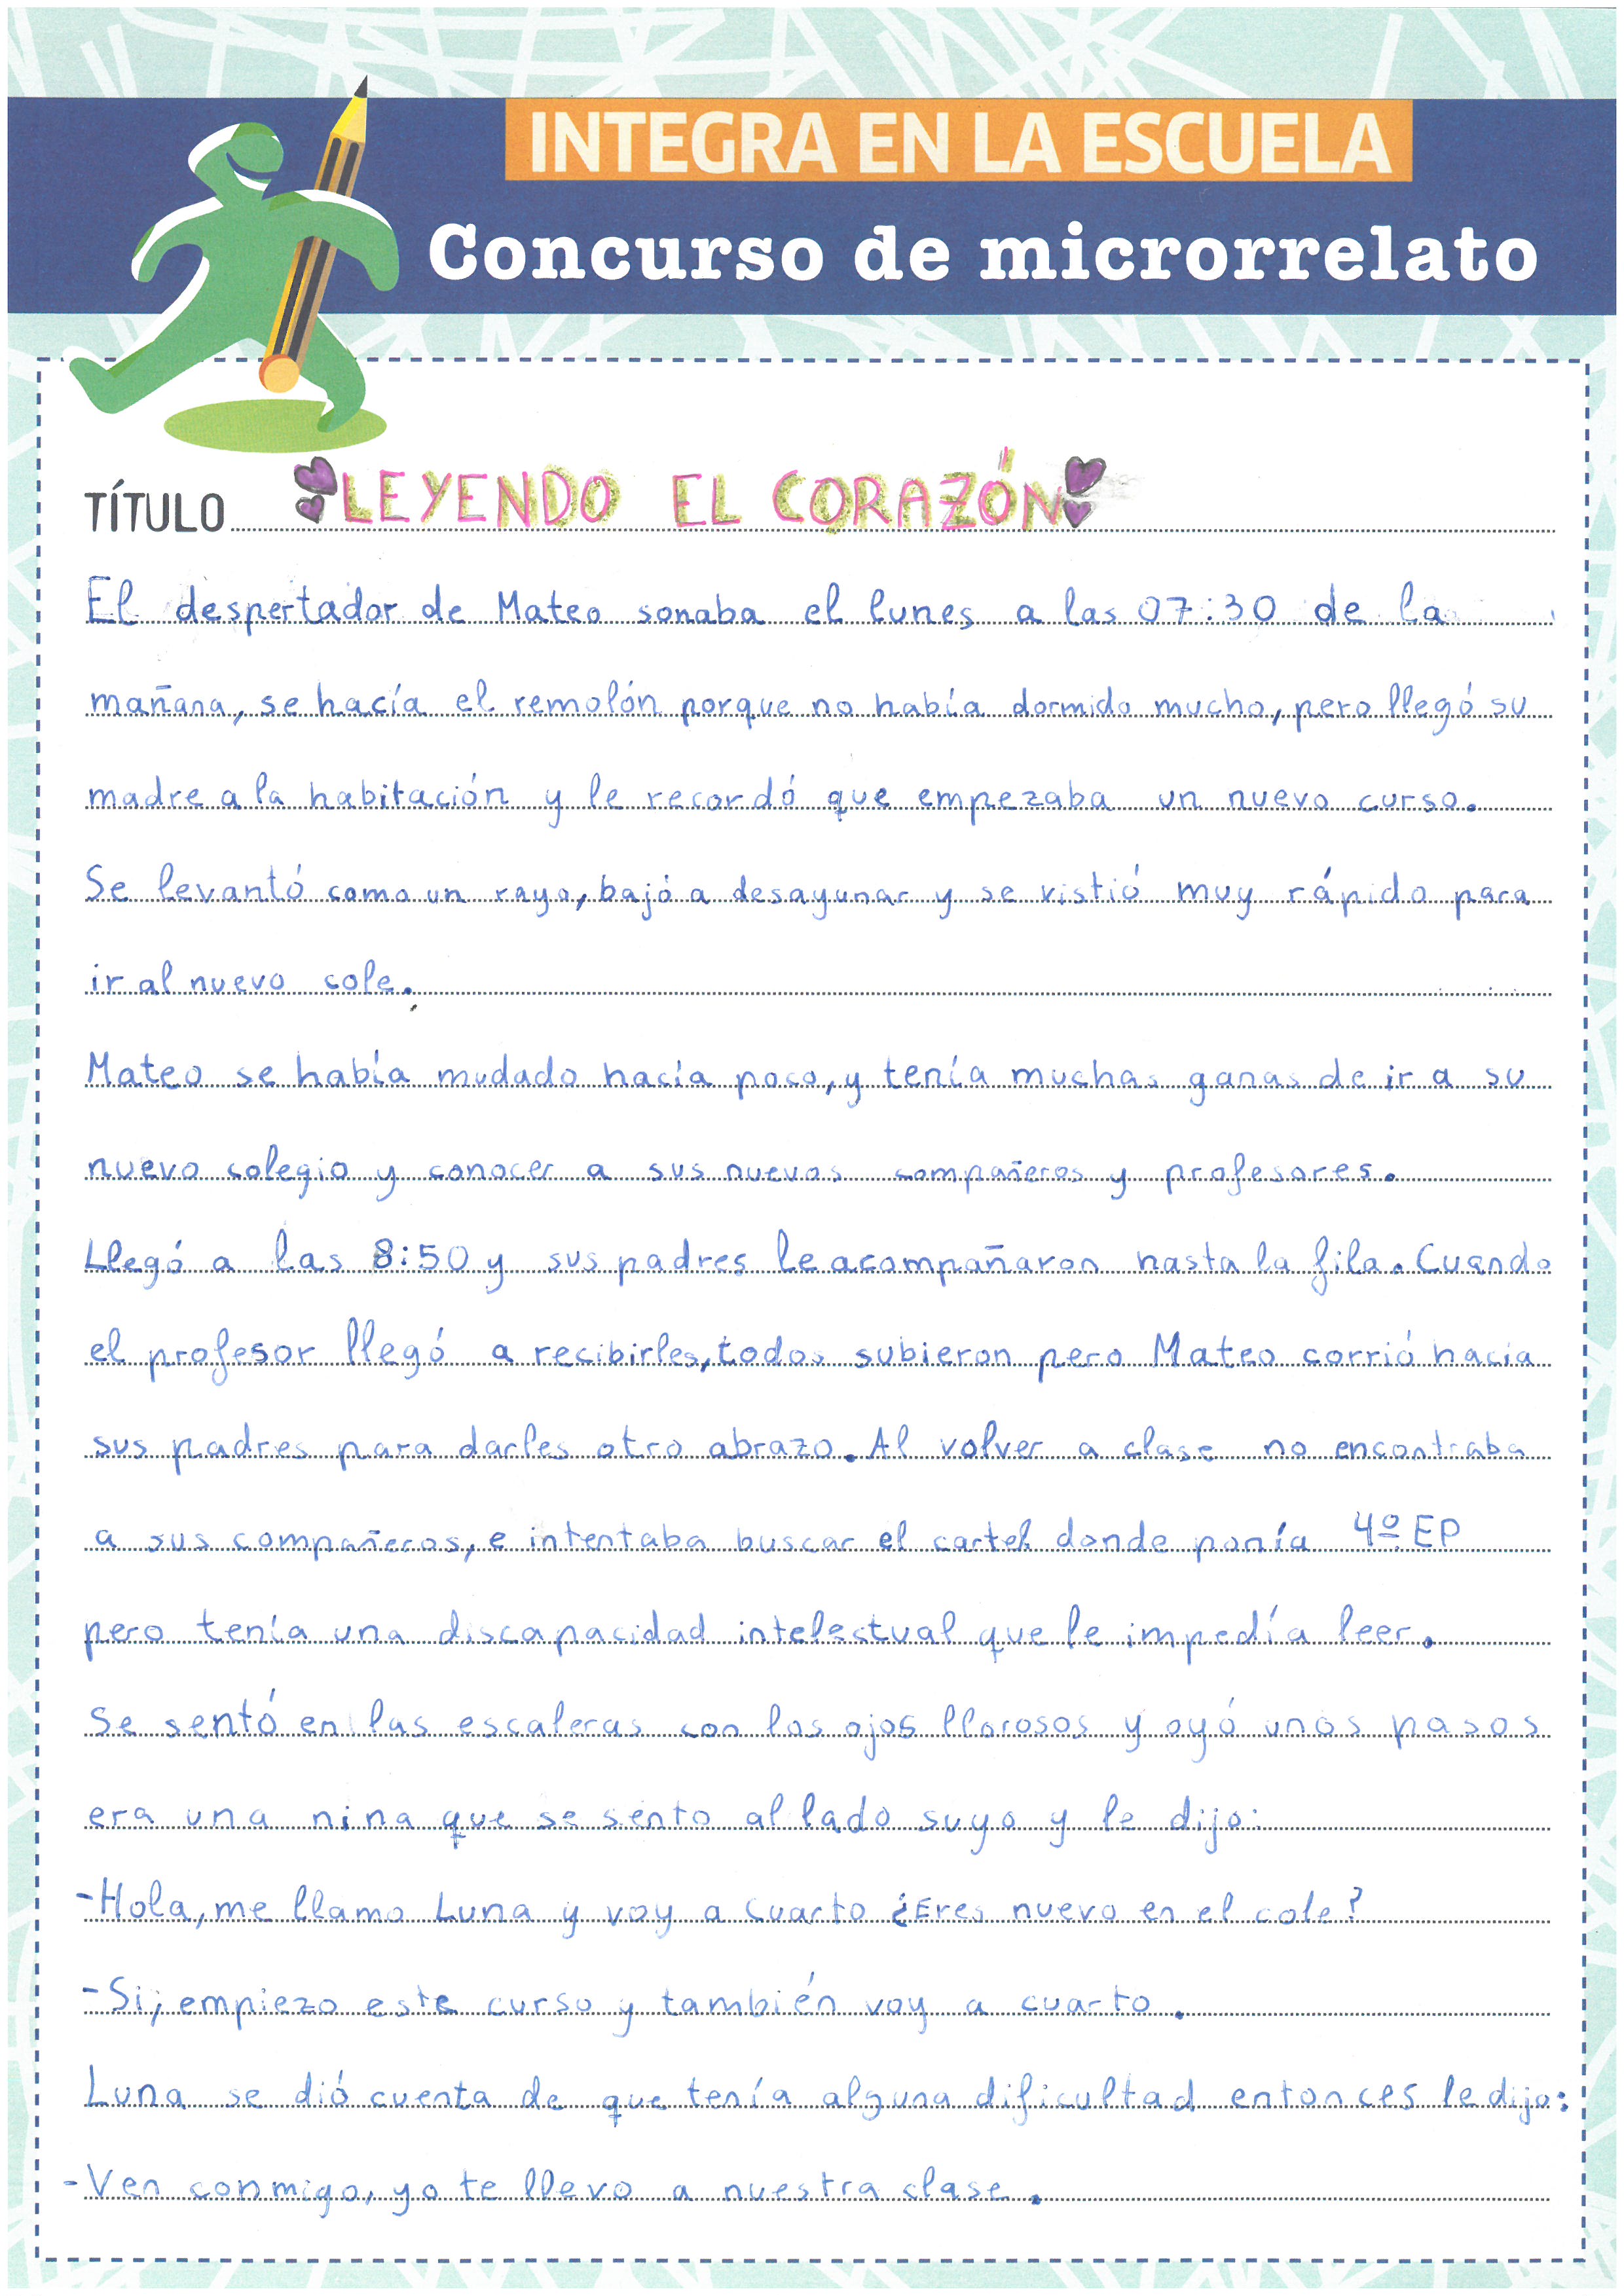 INTEGRA EN LA ESCUELA
Concurso de microrrelato
TÍTULO LEYENDO EL CORAZÓN
El despertador de Mateo sonaba el lunes a las 07:30 de la
mañana, se hacía el remolón porque no había dormido mucho, pero llegó su
madre a la habitación y le recordó que empezaba un nuevo curso.
Se levantó como un rayo, bajó a desayunar y se vistió muy rápido para
ir al nuevo cole.
Mateo se había mudado hacía poco, y tenía muchas ganas de ir a su
nuevo colegio y conocer a sus nuevos compañeros y profesores.
Llegó a las 8:50 y sus padres le acompañaron hasta la fila. Cuando
el profesor llegó a recibirles, todos subieron pero Mateo corrió hacia
sus padres para darles otro abrazo. Al volver a clase no encontraba
a sus compañeros, e intentaba buscar el cartel donde ponía 4º EP
pero tenía una discapacidad intelectual que le impedía leer.
Se sentó en las escaleras con los ojos llorosos y oyó unos pasos
era una nina que se sento al lado suyo y le dijo:
-Hola, me llamo Luna y voy a cuarto ¿Eres nuevo en el cole?
-Si, empiezo este curso y también voy a cuarto.
Luna se dió cuenta de que tenía alguna dificultad entonces le dijo:
-Ven conmigo, yo te llevo a nuestra clase.